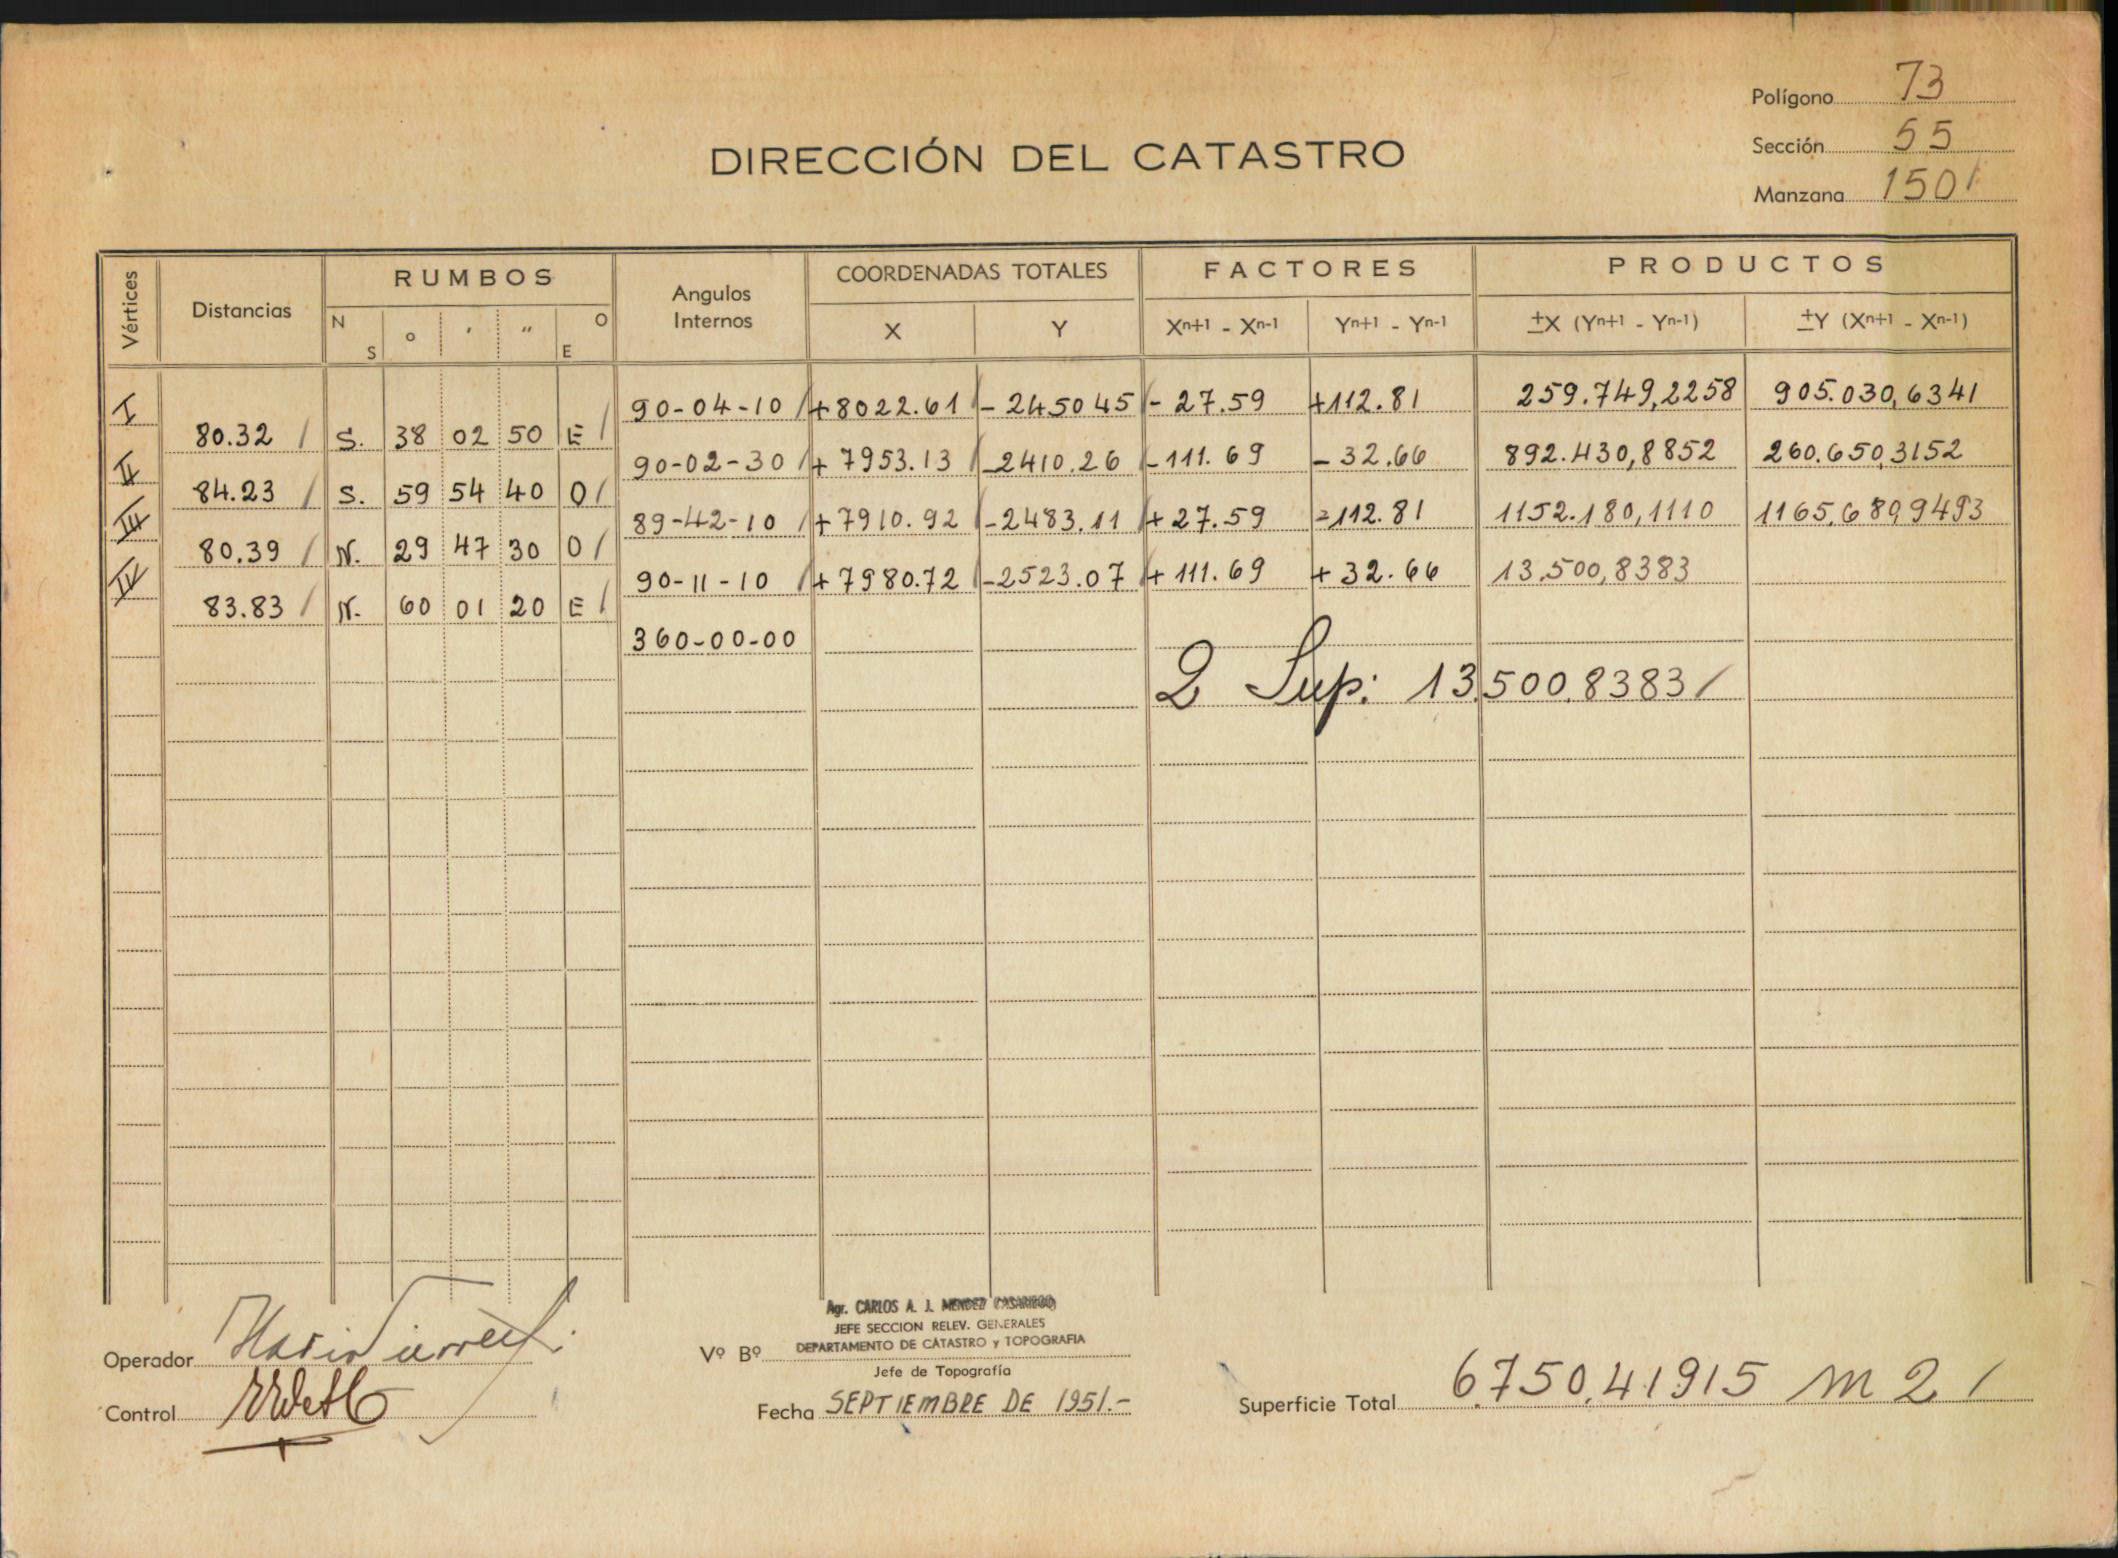 Polígono 73
DIRECCIÓN DEL CATASTRO
Sección 55
Manzana 150
Vértices Distancias RUMBOS Angulos Internos COORDENADAS TOTALES FACTORES PRODUCTOS
N S ° ' " O E X Y Xn+1 - Xn-1 Yn+1 - Yn-1 ±X (Yn+1 - Yn-1) ±Y (Xn+1 - Xn-1)
I 90-04-10 +8022.61 -245045 -27.59 +112.81 259.749,2258 905.030,6341
80.32 S. 38 02 50 E
II 90-02-30 +7953.13 -2410.26 -111.69 -32.66 892.430,8852 260.650,3152
84.23 S. 59 54 40 O
III 89-42-10 +7910.92 -2483.11 +27.59 -112.81 1152.180,1110 1165,6809493
80.39 N. 29 47 30 O
IV 90-11-10 +7980.72 -2523.07 +111.69 +32.66 13.500,8383
83.83 N. 60 01 20 E
360-00-00
2 Sup: 13.500,8383
Agr. CARLOS A. J. MENDEZ CASARIEGO
JEFE SECCION RELEV. GENERALES
DEPARTAMENTO DE CATASTRO y TOPOGRAFIA
Operador
Vº Bº
Jefe de Topografía
Control
Fecha SEPTIEMBRE DE 1951.-
Superficie Total 6.750,41915 m2